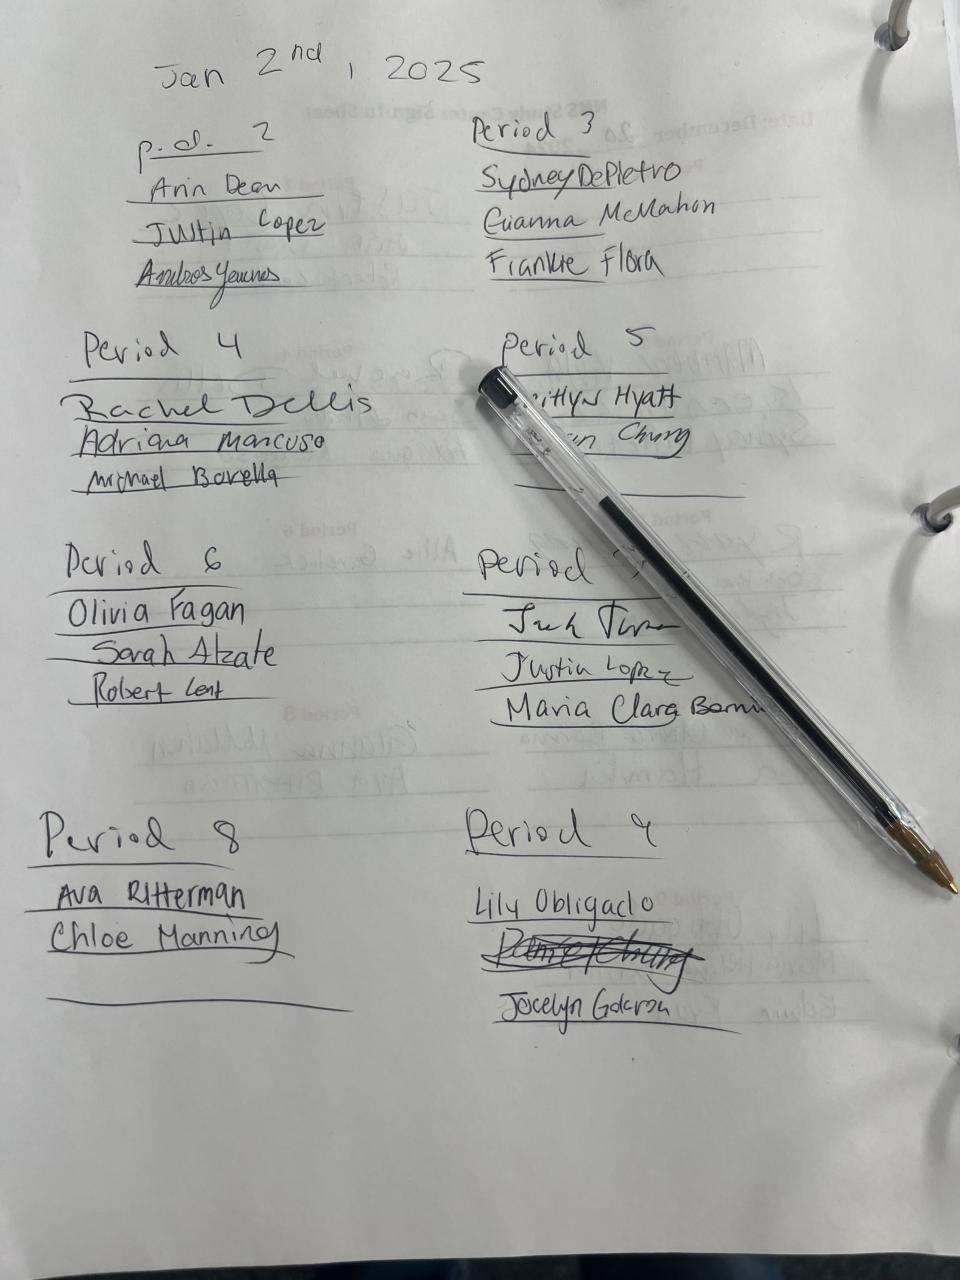 Jan 2nd, 2025
p.d. 2
Arin Dean
Justin Lopez
Period 3
Sydney DePietro
Gianna McMahon
Frankie Flora
Period 4
Rachel Dellis
Adriana Mancuso
Michael Barella
Period 5
Hyatt
Chung
Period 6
Olivia Fagan
Sarah Alzate
Robert Lent
Period
Jack
Justin Lopez
Maria Clara
Period 8
Ava Ritterman
Chloe Manning
Period 9
Lily Obligado
Jocelyn